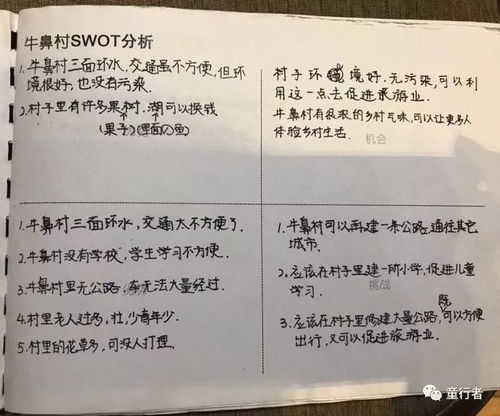 牛鼻村SWOT分析
1. 牛鼻村三面环水，交通虽不方便，但环
境很好，也没有污染。
2. 村子里有许多果树，湖可以换钱
(果子)(里面的鱼)
村子环境好，无污染，可以利
用这一点去促进旅游业.
牛鼻村有很浓的乡村气味，可以让更多人
体验乡村生活.
机会
1. 牛鼻村三面环水，交通太不方便了.
2. 牛鼻村没有学校，学生学习不方便.
3. 牛鼻村里无公路，车无法大量经过.
4. 村里老人过多，壮，少青年少.
5. 村里的花草多，可没人打理.
1. 牛鼻村可以再建一条公路，通往其它
城市.
2. 应该在村子里建一所小学，促进儿童
学习.
挑战
3. 应该在村子里修建大量公路，既可以方便
出行，又可以促进旅游业.
童行者